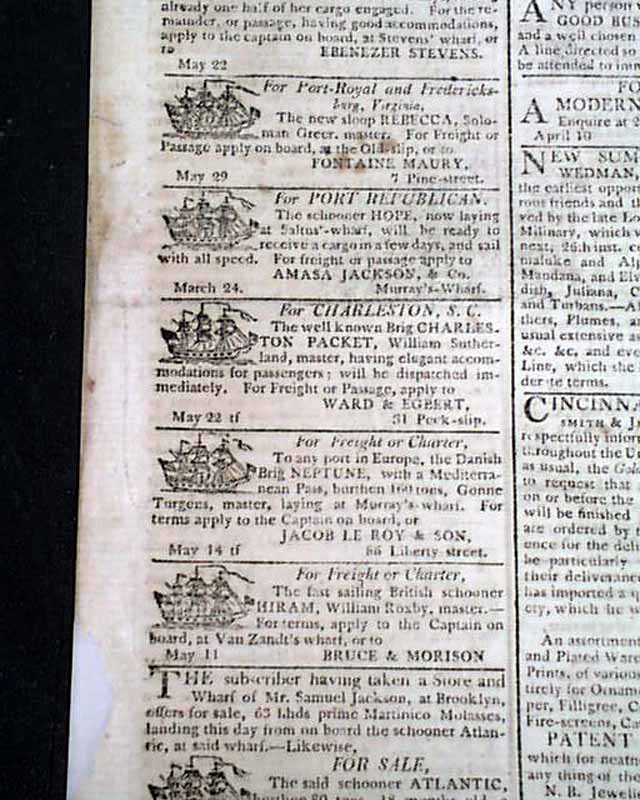 already one half of her cargo engaged. For the re-
mainder, or passage, having good accommodations,
apply to the captain on board, at Stevens' wharf, or
to EBENEZER STEVENS.
May 22
For Port-Royal and Fredericks-
burg, Virginia,
The new sloop REBECCA, Solo-
man Greer, master. For Freight or
Passage apply on board, at the Old-slip, or to
FONTAINE MAURY,
May 29 7 Pine-street.
For PORT REPUBLICAN.
The schooner HOPE, now laying
at Saltus'-wharf, will be ready to
receive a cargo in a few days, and sail
with all speed. For freight or passage apply to
AMASA JACKSON, & Co.
March 24. Murray's-Wharf.
For CHARLESTON, S. C.
The well known Brig CHARLES-
TON PACKET, William Suther-
land, master, having elegant accom-
modations for passengers; will be dispatched im-
mediately. For Freight or Passage, apply to
WARD & EGBERT,
May 22 tf 31 Peck-slip.
For Freight or Charter,
To any port in Europe, the Danish
Brig NEPTUNE, with a Mediterra-
nean Pass, burthen 160 tons, Gonne
Turgens, master, laying at Murray's-wharf. For
terms apply to the Captain on board, or
JACOB LE ROY & SON,
May 14 tf 66 Liberty street.
For Freight or Charter,
The fast sailing British schooner
HIRAM, William Roxby, master.—
For terms, apply to the Captain on
board, at Van Zandt's wharf, or to
May 11 BRUCE & MORISON
THE subscriber having taken a Store and
Wharf of Mr. Samuel Jackson, at Brooklyn,
offers for sale, 63 hhds prime Martinico Molasses,
landing this day from on board the schooner Atlan-
tic, at said wharf.—Likewise,
FOR SALE,
The said schooner ATLANTIC,
ANY person
GOOD BUS
and a well chosen
A line directed so
be attended to imm
FO
A MODERN
Enquire at 2
April 10
NEW SUM
WEDMAN,
the earliest oppor
rous friends and th
ved by the late Lo
Military, which w
neat, 26th inst. co
maluke and Alp
Mandana, and Els
dish, Juliana, C
and Turbans.—Al
thers, Plumes, a
usual extensive as
&c. &c. and eve
Line, which she
der te terms.
CINCINNA
SMITH & J
respectfully infor
throughout the Un
as usual, the Gold
to request that
on or before the
will be finished
are ordered by t
ence for the deli
be particularly
their deliverance
has imported a q
ety, which he w
An assortment
and Plated Ware
Prints, of various
tirely for Ornam
per, Filligree, C
Fire-screens, Ca
PATENT
which for neatne
any thing of the
N. B. Jewell